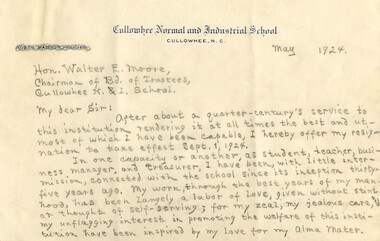 Cullowhee Normal and Industrial School
CULLOWHEE, N. C.
May 1924.
Hon. Walter E. Moore,
Chairman of Bd. of Trustees,
Cullowhee N. & I. School.
My dear Sir:
After about a quarter-century's service to
this institution, rendering it at all times the best and ut-
most of which I have been capable, I hereby offer my resig-
nation to take effect Sept. 1, 1924.
In one capacity or another, as student, teacher, busi-
ness manager, and treasurer, I have been, with little inter-
mission, connected with the school since its inception thirty-
five years ago. My work, through the best years of my man-
hood, has been largely a labor of love, given without stint
or thought of self-serving; for my zeal, my jealous care,
my unflagging interest in promoting the welfare of this insti-
tution have been inspired by my love for my Alma Mater.